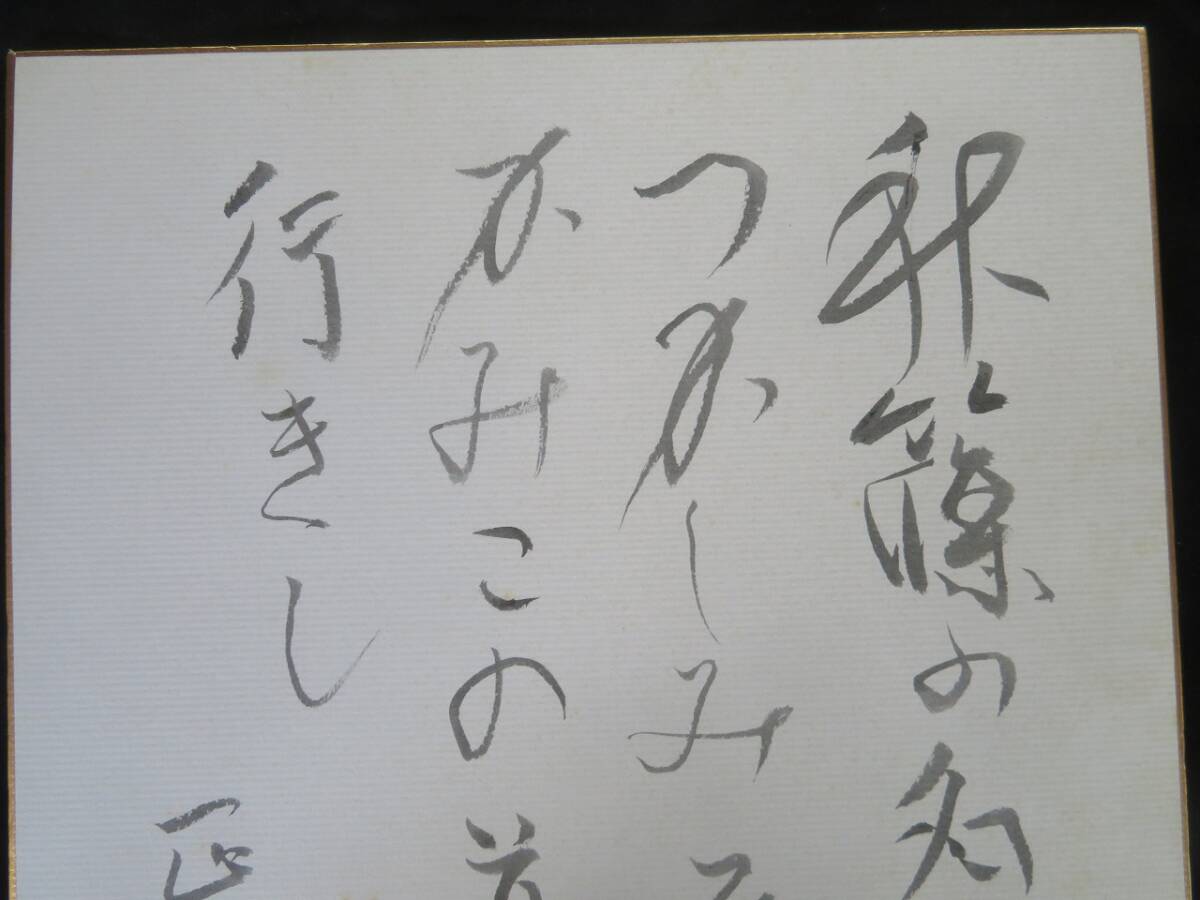 秋篠の名
つかしみ
かみこの道
行きし
正